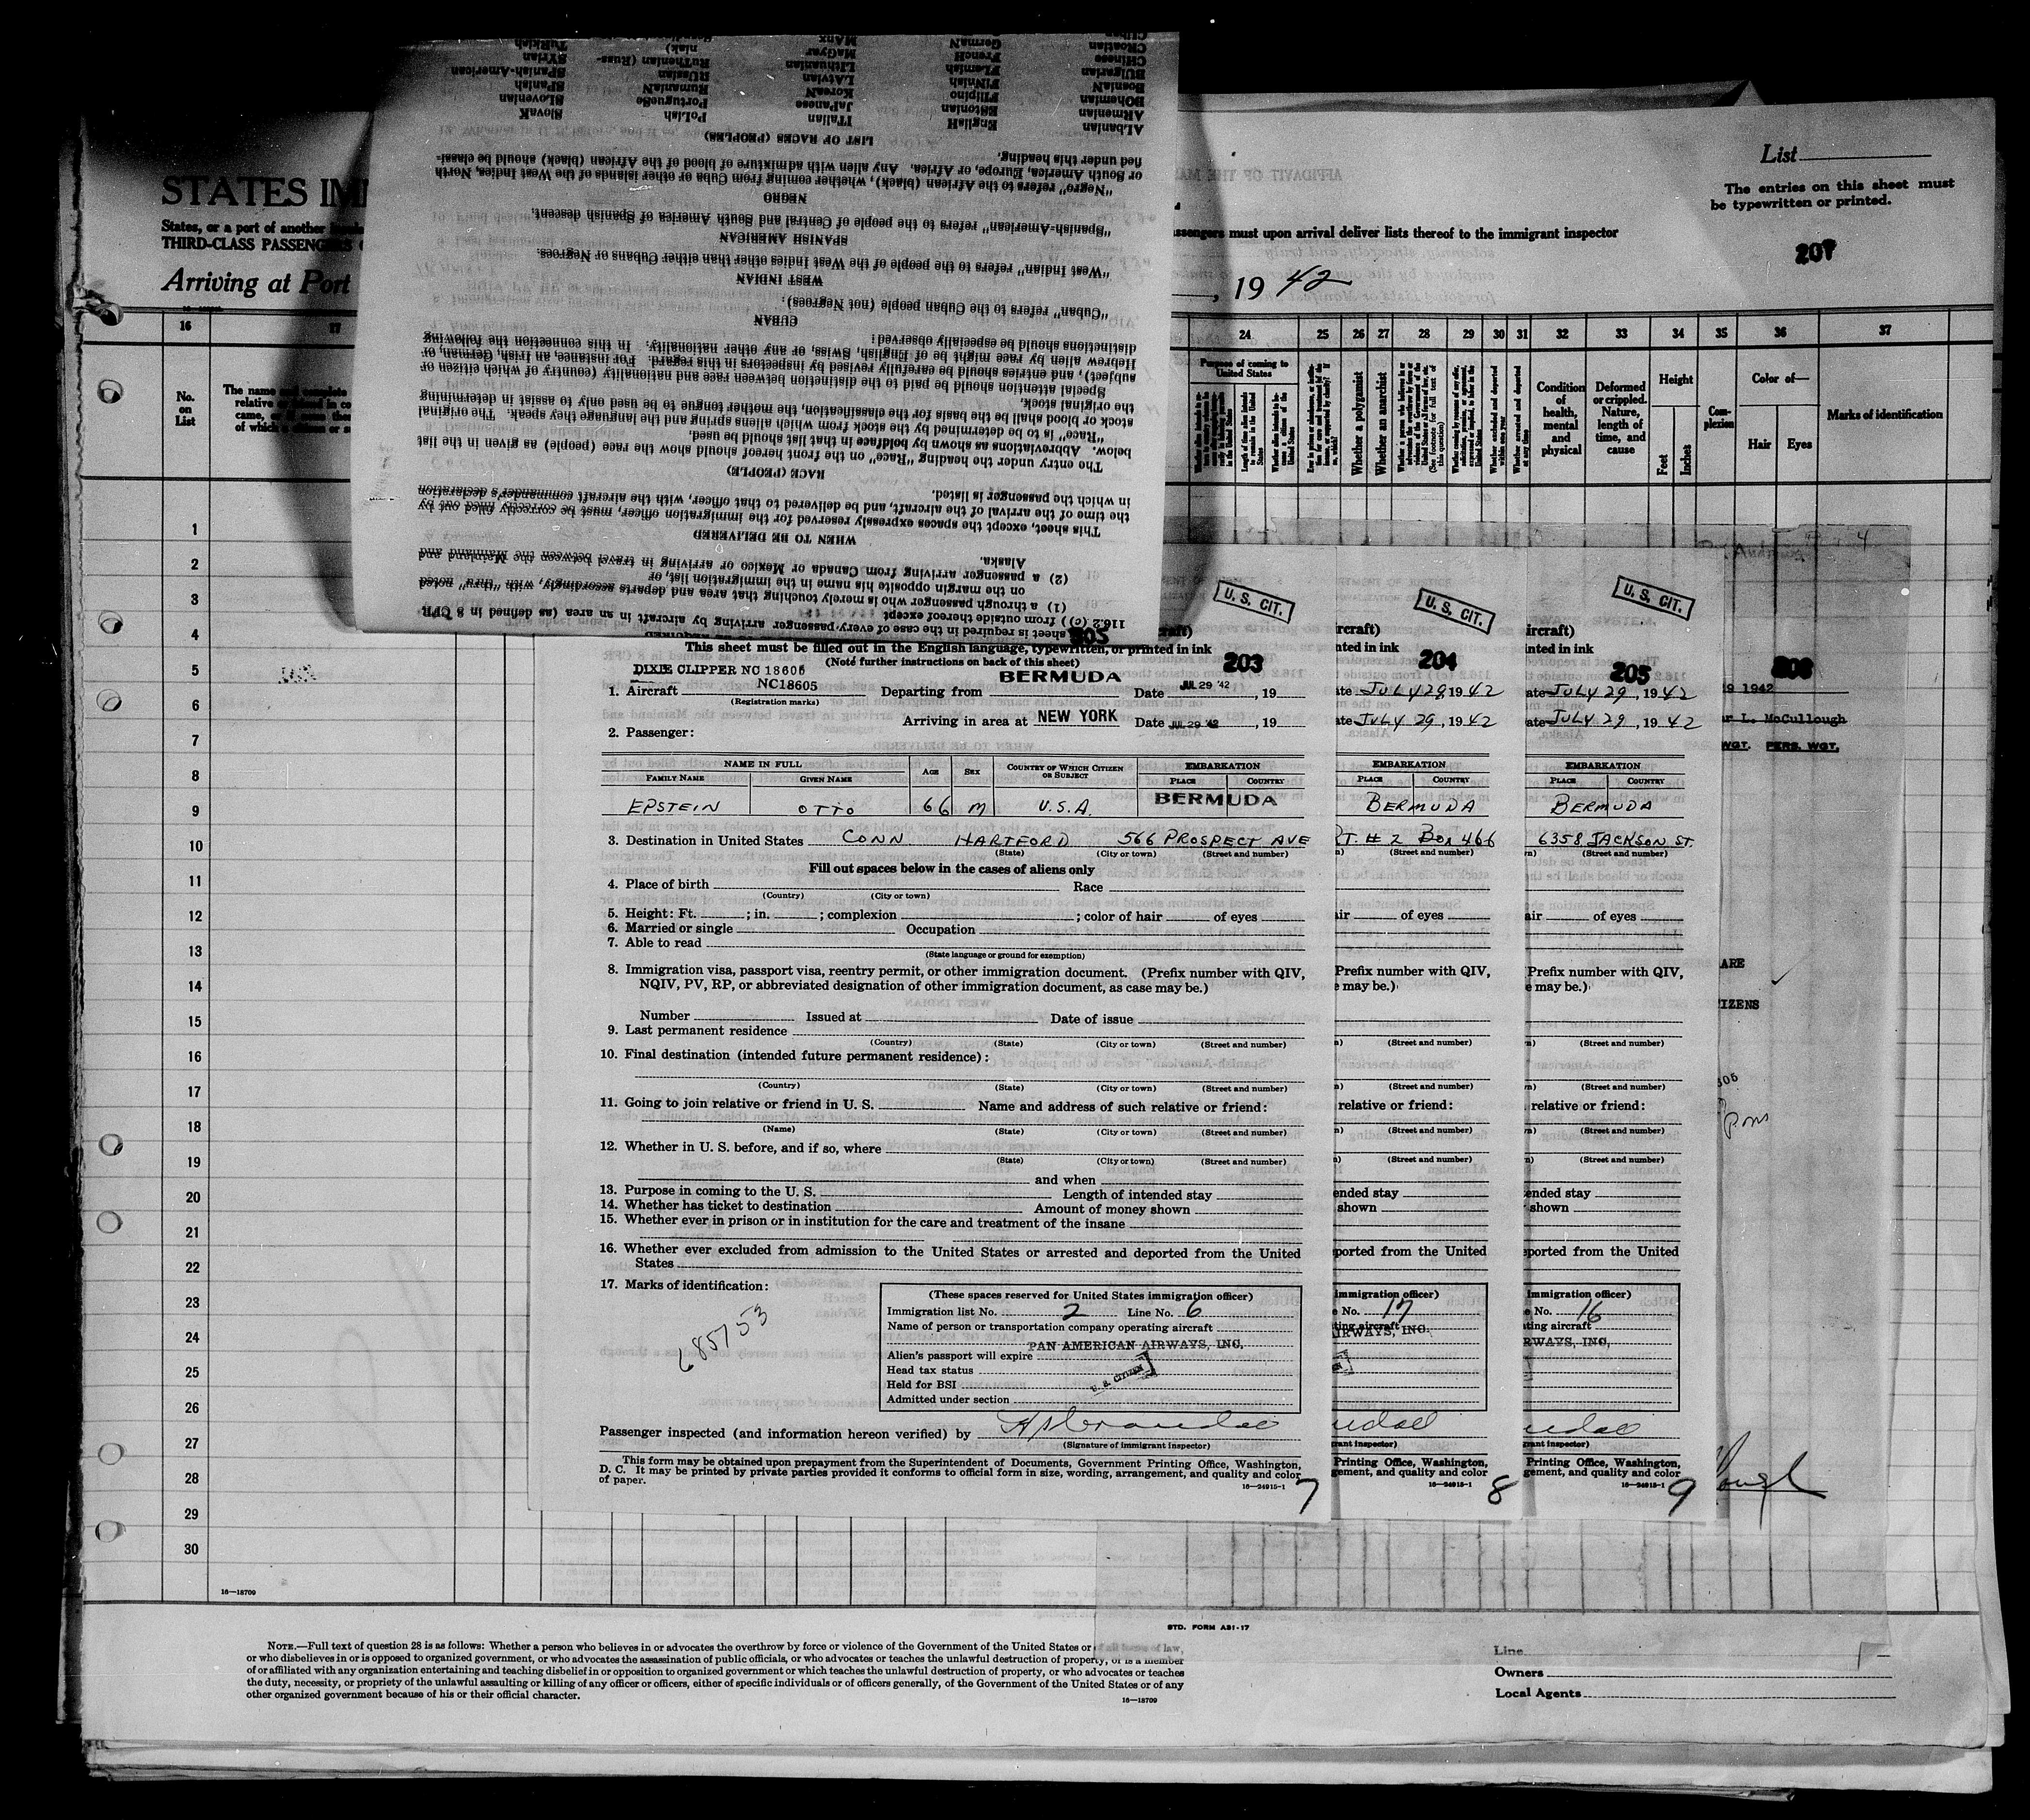 List
The entries on this sheet must
be typewritten or printed.
207
STATES IM
States, or a port of another
THIRD-CLASS PASSENGERS
Arriving at Port
passengers must upon arrival deliver lists thereof to the immigrant inspector
, 19 42
16 17 24 25 26 27 28 29 30 31 32 33 34 35 36 37
No.
on
List
Purpose of coming to
United States
Whether a polygamist
Whether an anarchist
Condition
of
health,
mental
and
physical
Deformed
or crippled.
Nature,
length of
time, and
cause
Height
Feet
Inches
Com-
plexion
Color of—
Hair
Eyes
Marks of identification
1
2
3
4
5
6
7
8
9
10
11
12
13
14
15
16
17
18
19
20
21
22
23
24
25
26
27
28
29
30
16—18709
sheet is required in the case of every passenger arriving by aircraft in an area (as defined in 8 CFR
116.2 (c)) from outside thereof except
(1) a through passenger who is merely touching that area and departs accordingly, with "thru" noted
on the margin opposite his name in the immigration list, or
(2) a passenger arriving from Canada or Mexico or arriving in travel between the Mainland and
Alaska.
WHEN TO BE DELIVERED
This sheet, except the spaces expressly reserved for the immigration officer, must be correctly filled out by
the time of the arrival of the aircraft, and be delivered to that officer, with the aircraft commander's declaration
in which the passenger is listed.
RACE (PEOPLE)
The entry under the heading "Race" on the front hereof should show the race (people) as given in the list
below. Abbreviations as shown by boldface in that list should be used.
"Race" is to be determined by the stock from which aliens spring and the language they speak. The original
stock or blood shall be the basis for the classification, the mother tongue to be used only to assist in determining
the original stock.
Special attention should be paid to the distinction between race and nationality (country of which citizen or
subject), and entries should be carefully revised by inspectors in this regard. For instance, an Irish, German, or
Hebrew alien by race might be of English, Swiss, or any other nationality. In this connection the following
distinctions should be especially observed:
CUBAN
"Cuban" refers to the Cuban people (not Negroes):
WEST INDIAN
"West Indian" refers to the people of the West Indies other than either Cubans or Negroes.
SPANISH AMERICAN
"Spanish-American" refers to the people of Central and South America of Spanish descent.
NEGRO
"Negro" refers to the African (black), whether coming from Cuba or other islands of the West Indies, North
or South America, Europe, or Africa. Any alien with admixture of blood of the African (black) should be classi-
fied under this heading.
LIST OF RACES (PEOPLES)
ALbanian EnglisH ITalian PoLish SlovaK
ARmenian EStonian JaPanese PortugueSe SLovenian
BOhemian FIlipino KoreaN RumaniaN SPanish
BosniaN FiNnish LAtvian RUssian SPanish-American
BUlgarian FLemish LIthuanian RuThenian (Russ- SYrian
CHinese FrencH MaGyar niak) TuRkish
CRoatian GermaN MAnx
305
This sheet must be filled out in the English language, typewritten, or printed in ink
(Note further instructions on back of this sheet)
U. S. CIT.
203
DIXIE CLIPPER NC 18605
1. Aircraft NC18605 Departing from BERMUDA Date JUL 29 '42, 19
(Registration marks)
Arriving in area at NEW YORK Date JUL 29 '42, 19
2. Passenger:
NAME IN FULL
FAMILY NAME GIVEN NAME
AGE SEX COUNTRY OF WHICH CITIZEN
OR SUBJECT
EMBARKATION
PLACE COUNTRY
EPSTEIN OTTO 66 M U.S.A. BERMUDA
3. Destination in United States CONN HARTFORD 566 PROSPECT AVE
(State) (City or town) (Street and number)
Fill out spaces below in the cases of aliens only
4. Place of birth Race
(Country) (City or town)
5. Height: Ft. ; in. ; complexion ; color of hair of eyes
6. Married or single Occupation
7. Able to read
(State language or ground for exemption)
8. Immigration visa, passport visa, reentry permit, or other immigration document. (Prefix number with QIV,
NQIV, PV, RP, or abbreviated designation of other immigration document, as case may be.)
Number Issued at Date of issue
9. Last permanent residence
(Country) (State) (City or town) (Street and number)
10. Final destination (intended future permanent residence):
(Country) (State) (City or town) (Street and number)
11. Going to join relative or friend in U. S. Name and address of such relative or friend:
(Name) (State) (City or town) (Street and number)
12. Whether in U. S. before, and if so, where
(State) (City or town) (Street and number)
and when
13. Purpose in coming to the U. S. Length of intended stay
14. Whether has ticket to destination Amount of money shown
15. Whether ever in prison or in institution for the care and treatment of the insane
16. Whether ever excluded from admission to the United States or arrested and deported from the United
States
17. Marks of identification:
685153
(These spaces reserved for United States immigration officer)
Immigration list No. 2 Line No. 6
Name of person or transportation company operating aircraft
PAN AMERICAN AIRWAYS, INC.
Alien's passport will expire
Head tax status
U. S. CITIZEN
Held for BSI
Admitted under section
Passenger inspected (and information hereon verified) by
(Signature of immigrant inspector)
This form may be obtained upon prepayment from the Superintendent of Documents, Government Printing Office, Washington,
D. C. It may be printed by private parties provided it conforms to official form in size, wording, arrangement, and quality and color
of paper.
16—24915-1
7
U. S. CIT.
rcraft)
nted in ink
204
ate JULY 29, 1942
ate JULY 29, 1942
EMBARKATION
PLACE COUNTRY
BERMUDA
RT. # 2 Box 466
(Street and number)
air of eyes
Prefix number with QIV,
e may be.)
(Street and number)
(Street and number)
relative or friend:
(Street and number)
(Street and number)
ended stay
shown
ported from the United
immigration officer)
e No. 17
ting aircraft
IRWAYS, INC.
rant inspector)
Printing Office, Washington,
gement, and quality and color
16—24915-1
8
U. S. CIT.
ircraft)
inted in ink
205
ate JULY 29, 1942
ate JULY 29, 1942
EMBARKATION
PLACE COUNTRY
BERMUDA
6358 JACKSON ST.
(Street and number)
air of eyes
Prefix number with QIV,
e may be.)
(Street and number)
(Street and number)
relative or friend:
(Street and number)
(Street and number)
ended stay
shown
ported from the United
immigration officer)
e No. 16
ting aircraft
RWAYS, INC.
rant inspector)
Printing Office, Washington,
gement, and quality and color
16—24915-1
9
206
9 1942
r L. McCullough
WGT. PERS. WGT.
ARE
IZENS
STD. FORM A31-17
NOTE.—Full text of question 28 is as follows: Whether a person who believes in or advocates the overthrow by force or violence of the Government of the United States or of all forms of law,
or who disbelieves in or is opposed to organized government, or who advocates the assassination of public officials, or who advocates or teaches the unlawful destruction of property, or is a member
of or affiliated with any organization entertaining and teaching disbelief in or opposition to organized government or which teaches the unlawful destruction of property, or who advocates or teaches
the duty, necessity, or propriety of the unlawful assaulting or killing of any officer or officers, either of specific individuals or of officers generally, of the Government of the United States or of any
other organized government because of his or their official character.
16—18709
Line
Owners
Local Agents